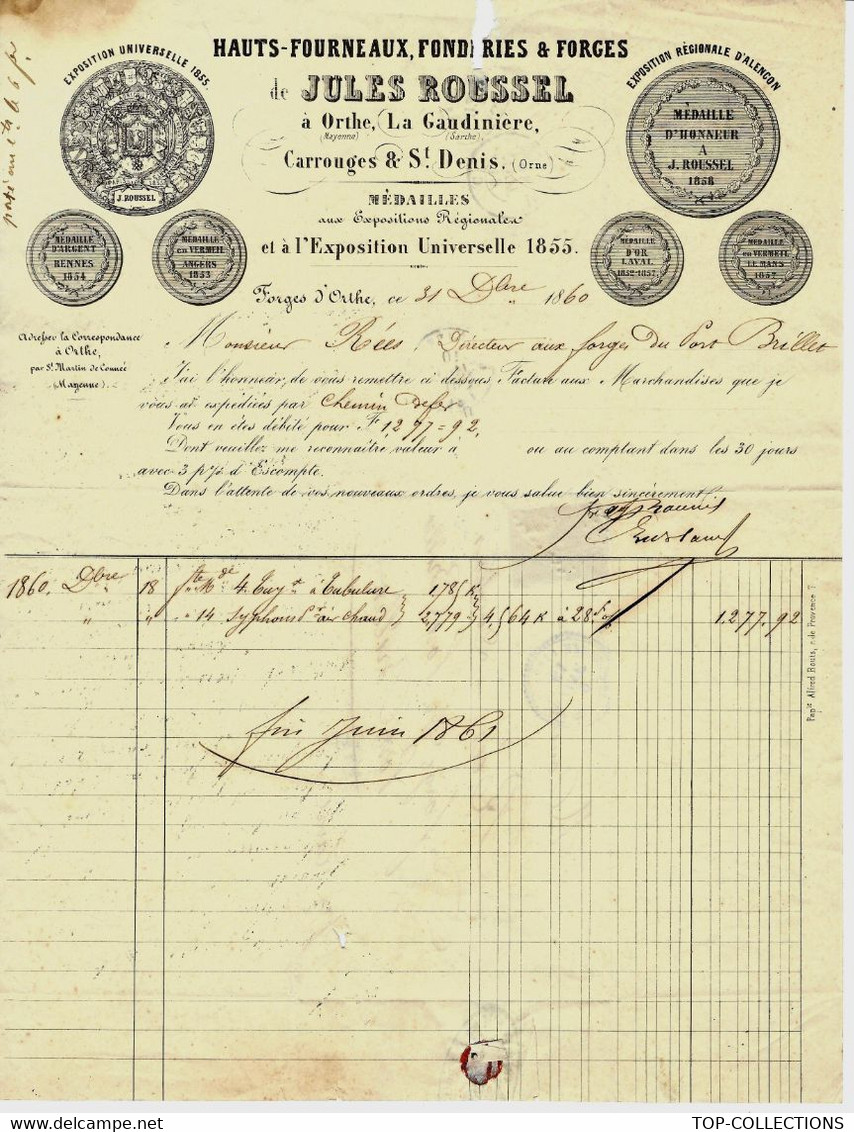 HAUTS-FOURNEAUX, FONDERIES & FORGES
de JULES ROUSSEL
à Orthe, La Gaudinière,
(Mayenne) (Sarthe)
Carrouges & St. Denis. (Orne)
MÉDAILLES
aux Expositions Régionales
et à l'Exposition Universelle 1855.
EXPOSITION UNIVERSELLE 1855.
J. ROUSSEL
MÉDAILLE D'ARGENT RENNES 1854
MÉDAILLE en VERMEIL ANGERS 1853
EXPOSITION RÉGIONALE D'ALENÇON
MÉDAILLE
D'HONNEUR
A
J. ROUSSEL
1858
MÉDAILLE D'OR LAVAL 1852-1857
MÉDAILLE en VERMEIL LE MANS 1857
Forges d'Orthe, ce 31 Dbre 1860
Adresser la Correspondance
à Orthe,
par St. Martin de Connée
(Mayenne).
Monsieur Rées, Directeur aux forges du Port Brillet
J'ai l'honneur, de vous remettre ci dessous Facture aux Marchandises que je
vous ai expédiées par Chemin De fer
Vous en êtes débité pour F 1277=92.
Dont veuillez me reconnaître valeur à ou au comptant dans les 30 jours
avec 3 p% d'Escompte.
Dans l'attente de vos nouveaux ordres, je vous salue bien sincèrement.
1860. Dbre 18 4 Tuy à Tubulure 1785 K
" " 14 Syphons pr air Chaud 2779 4,564 K à 28 f % 1.277.92
fin Juin 1861
Papie Alfred Bouts, r. de Provence 7.
TOP-COLLECTIONS